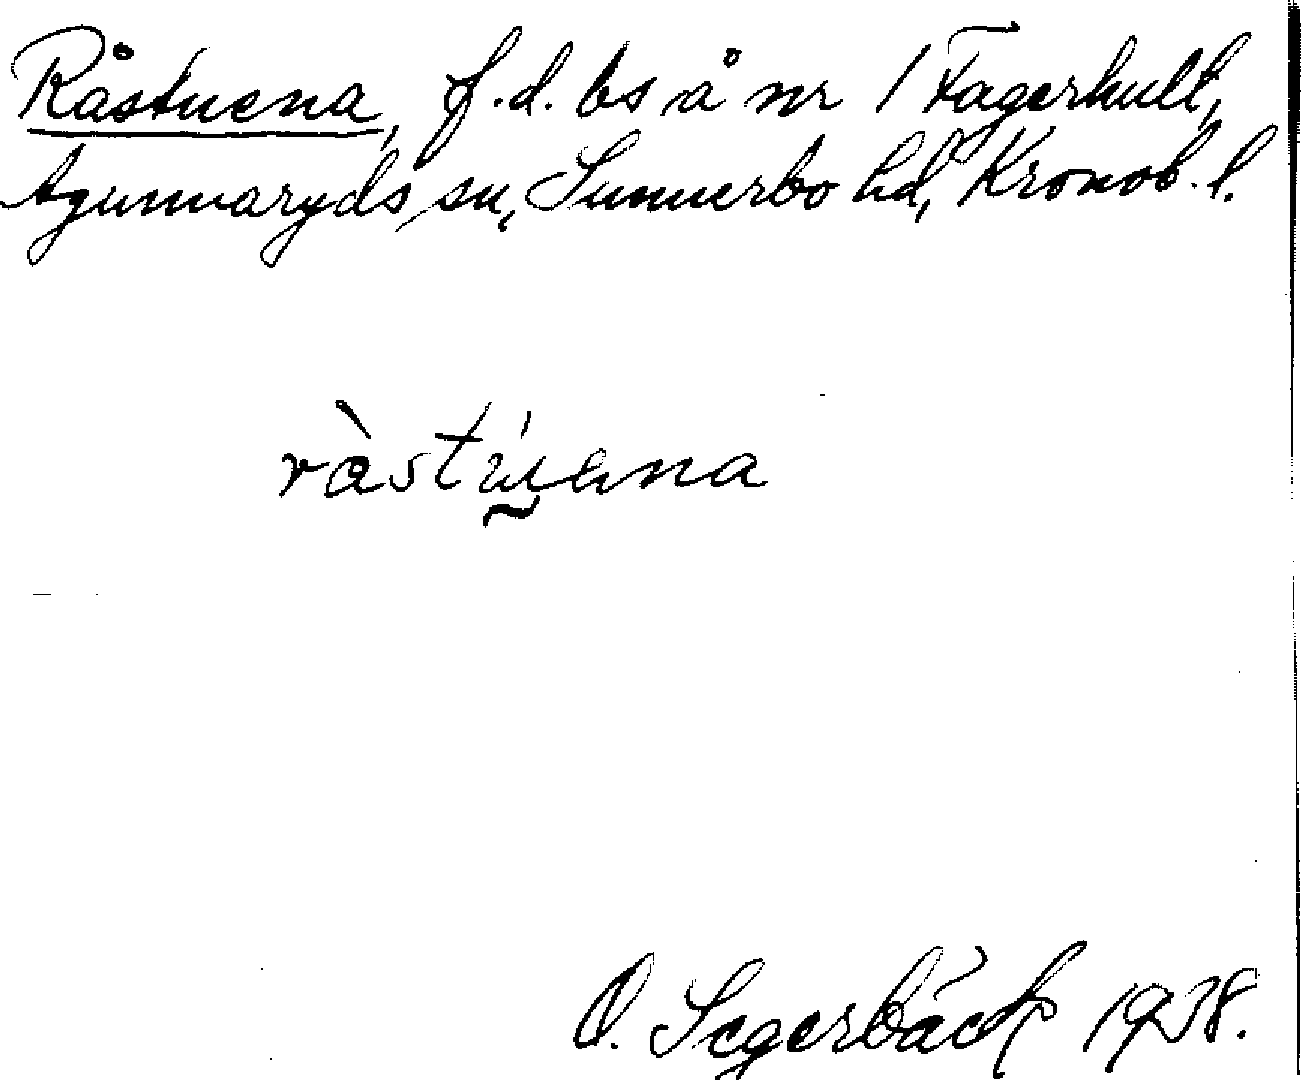 Råstuena, f.d. bs å nr 1 Fagerhult,
Agunnaryds sn, Sunnerbo hd, Kronob. l.
ràstṵ́ena
O. Segerbäck 1938.